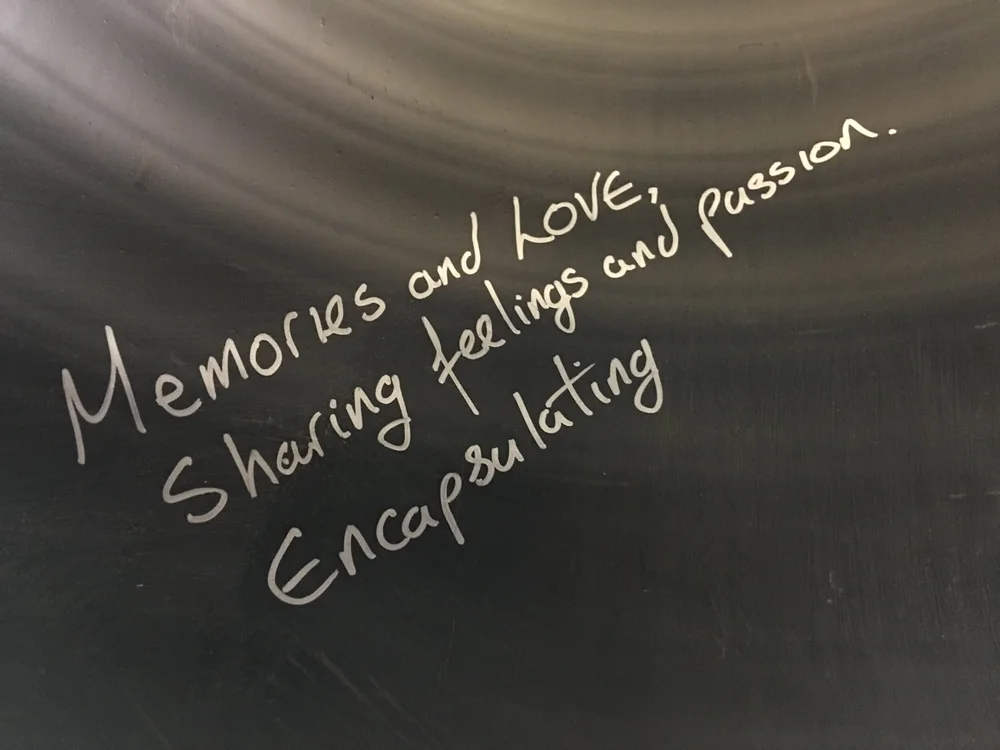 Memories and LOVE,
Sharing feelings and passion.
Encapsulating